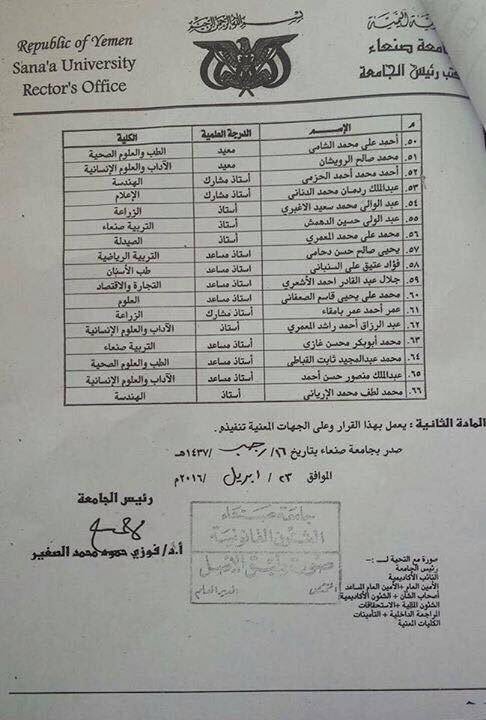 بسم الله الرحمن الرحيم
Republic of Yemen
Sana'a University
Rector's Office
جامعة صنعاء
مكتب رئيس الجامعة
م الإســم الدرجة العلمية الكلية
٥٠. أحمد علي محمد الشامي معيد الطب والعلوم الصحية
٥١. محمد صالح الرويشان معيد الآداب والعلوم الإنسانية
٥٢. أحمد محمد أحمد الحزمي أستاذ مشارك الهندسة
٥٣. عبدالملك ردمان محمد الدناني أستاذ مشارك الإعلام
٥٤. عبد الوالي محمد سعيد الاغبري أستاذ الزراعة
٥٥. عبد الولي حسين الدهمش أستاذ التربية صنعاء
٥٦. محمد علي محمد المعمري أستاذ الصيدلة
٥٧. يحيى صالح حسن دحامي استاذ مساعد التربية الرياضية
٥٨. فؤاد عتيق علي السنباني أستاذ مساعد طب الأسنان
٥٩. جلال عبد القادر احمد الأشعري أستاذ مساعد التجارة والاقتصاد
٦٠. محمد علي يحيى قاسم الصعفاني أستاذ مساعد العلوم
٦١. عمر أحمد عمر بامقاء أستاذ مشارك الزراعة
٦٢. عبد الرزاق أحمد راشد المعمري أستاذ الآداب والعلوم الإنسانية
٦٣. محمد أبوبكر محسن غازي أستاذ مساعد التربية صنعاء
٦٤. محمد عبدالمجيد ثابت القباطي أستاذ مساعد الطب والعلوم الصحية
٦٥. عبدالملك منصور حسن أحمد أستاذ مساعد الآداب والعلوم الإنسانية
٦٦. محمد لطف محمد الإرياني أستاذ الهندسة
المادة الثانية : يعمل بهذا القرار وعلى الجهات المعنية تنفيذه.
صدر بجامعة صنعاء بتاريخ ١٦/ رجب /١٤٣٧هـ
الموافق ٢٣ / ابريل /٢٠١٦م
رئيس الجامعة
أ.د/ فوزي حمود محمد الصغير
جامعة صنعاء
الشئون القانونية
صورة طبق الأصل
المختص
صورة مع التحية لـــ :-
رئيس الجامعة
النائب الأكاديمية
الأمين العام + الأمين العام المساعد
أصحاب الشأن + الشئون الأكاديمية
الشئون المالية + الاستحقاقات
المراجعة الداخلية + التأمينات
الكليات المعنية